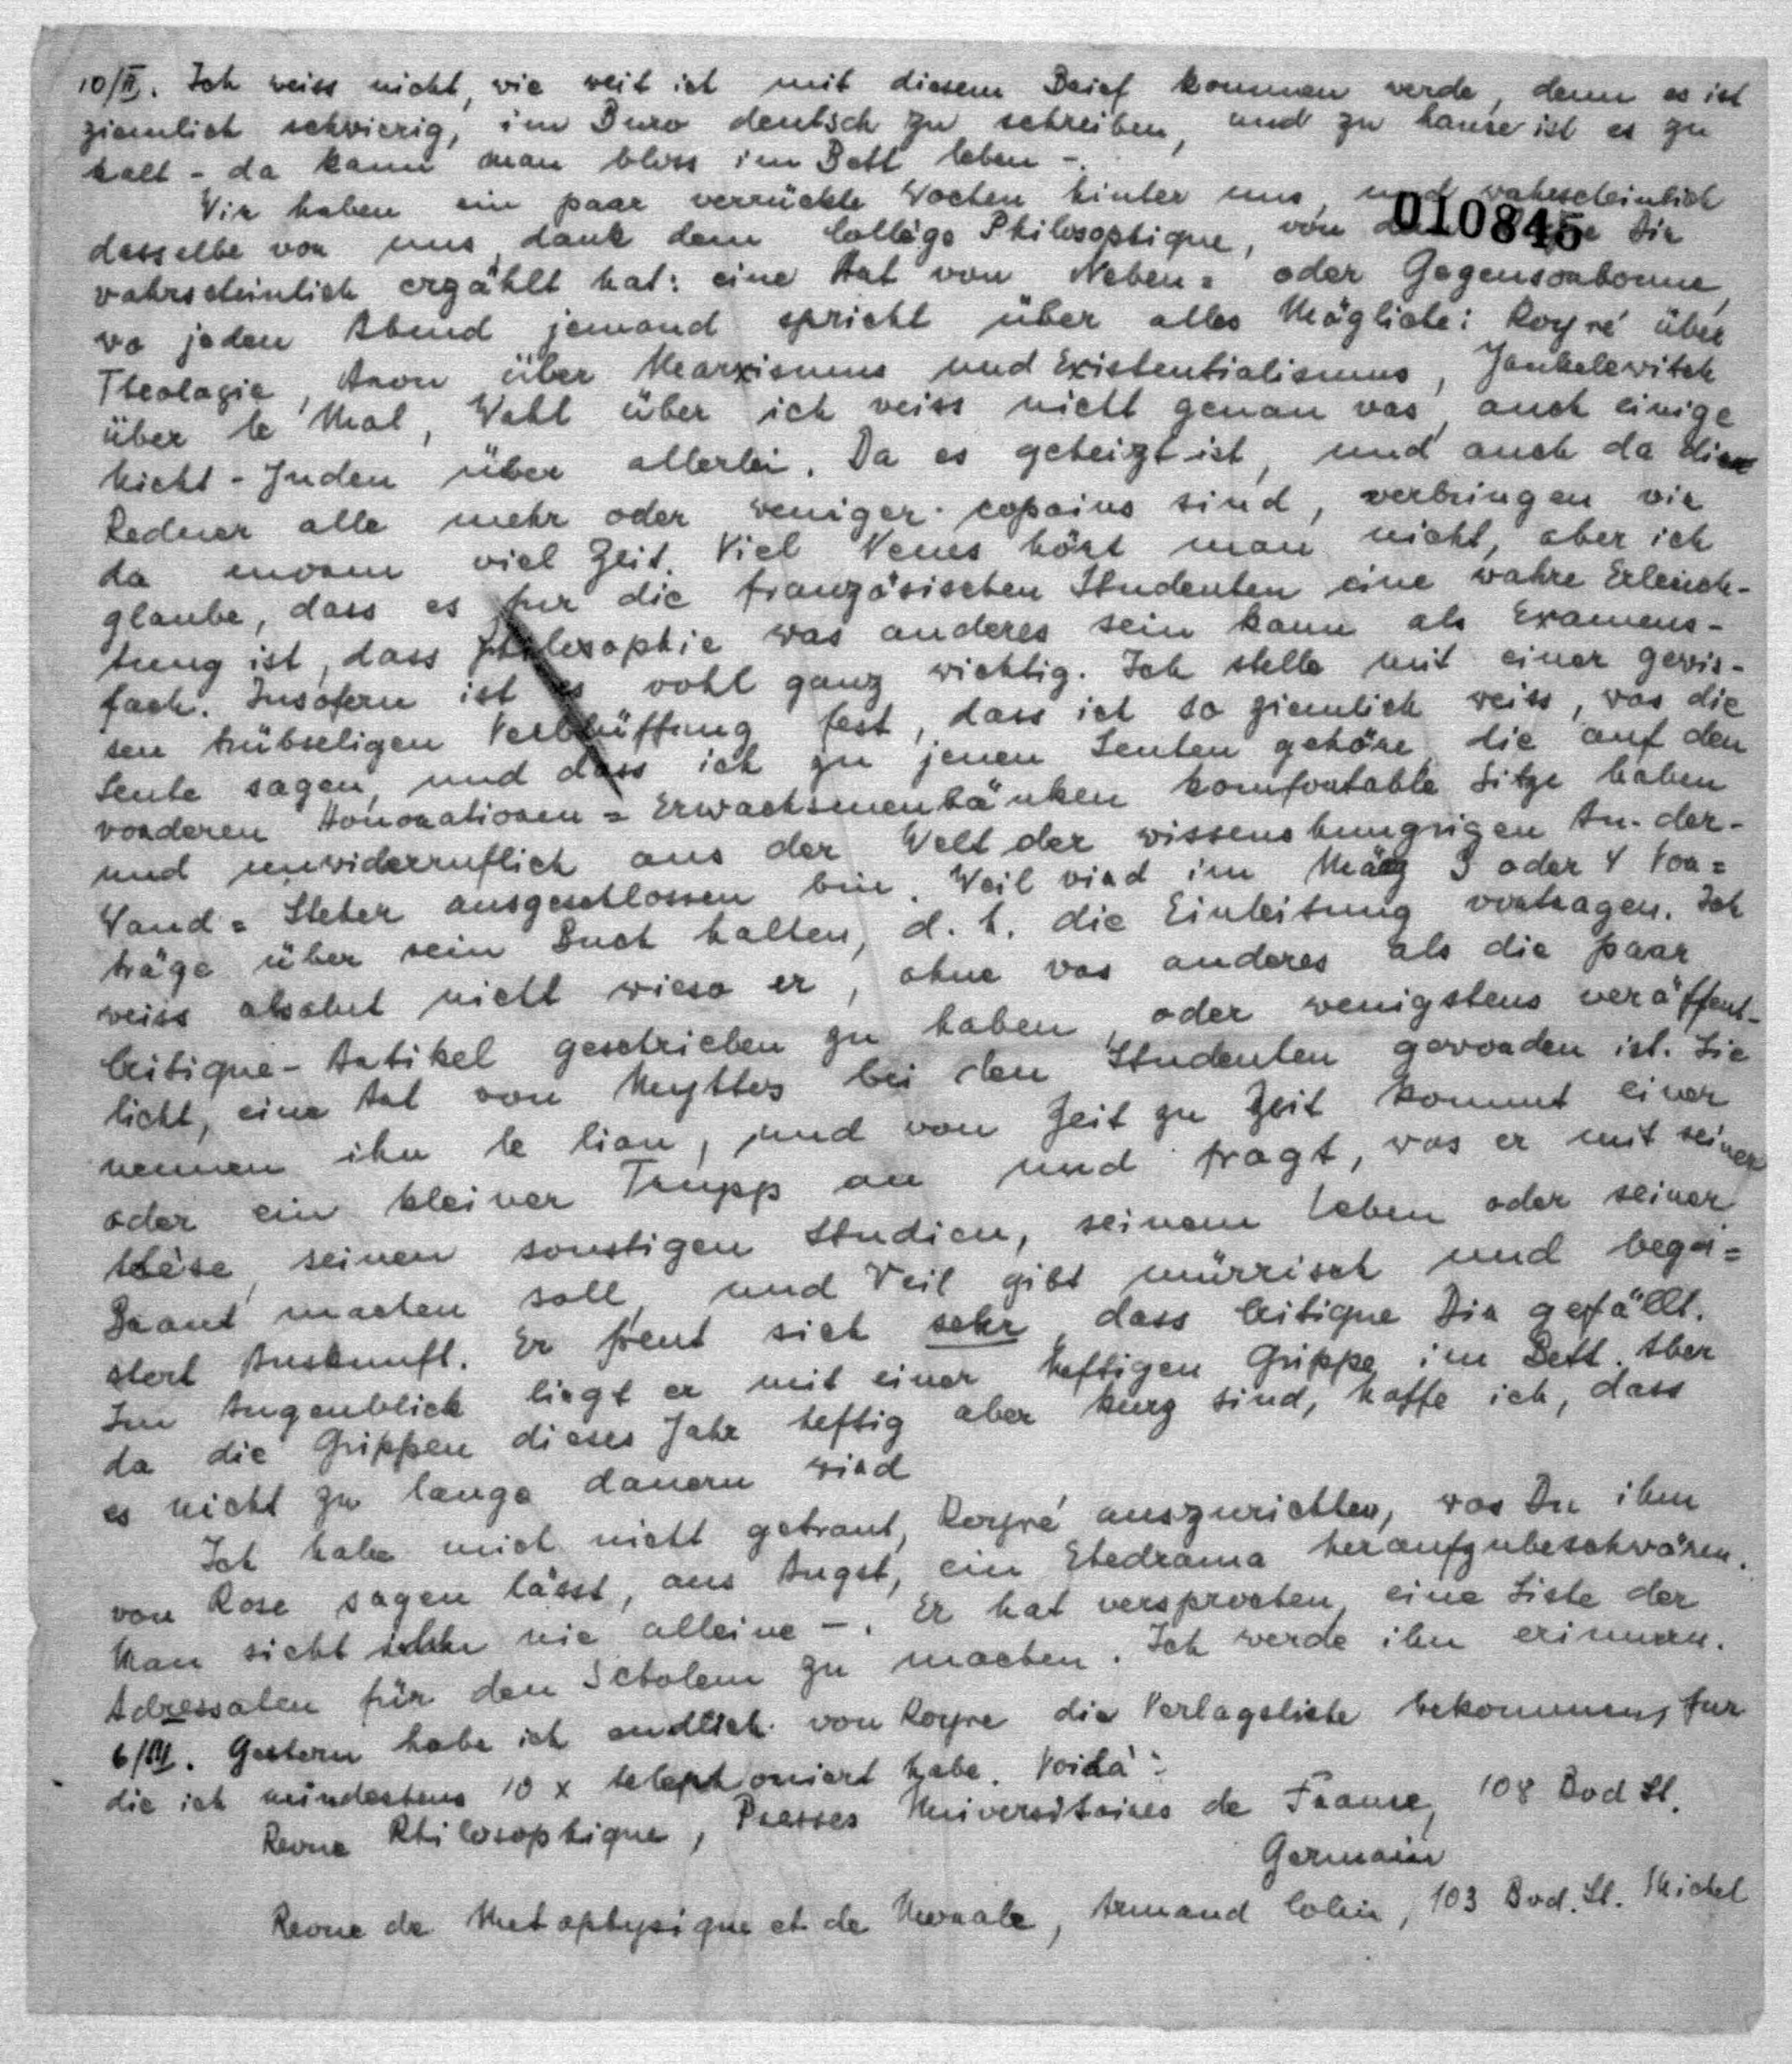 10/II. Ich weiss nicht, wie weit ich mit diesem Brief kommen werde, denn es ist
ziemlich schwierig, im Buro deutsch zu schreiben, und zu hause ist es zu
kalt - da kann man bloss im Bett leben -.
Wir haben ein paar verrückte Wochen hinter uns, und wahrscheinlich
010845
dasselbe vor uns, dank dem Collège Philosophique, von dem Dir
wahrscheinlich erzählt hat: eine Art von Neben= oder Gegensorbonne,
wo jeden Abend jemand spricht über alles Mögliche: Koyré über
Theologie, Aron über Marxismus und Existentialismus, Jankelewitch
über le Mal, Wahl über ich weiss nicht genau was, auch einige
Nicht-Juden über allerlei. Da es geheizt ist, und auch da die
Redner alle mehr oder weniger copains sind, verbringen wir
da enorm viel Zeit. Viel Neues hört man nicht, aber ich
glaube, dass es fur die französischen Studenten eine wahre Erleuch-
tung ist, dass Philosophie was anderes sein kann als Examens-
fach. Insofern ist es wohl ganz wichtig. Ich stelle mit einer gewis-
sen trübseligen Verblüffung fest, dass ich so ziemlich weiss, was die
Leute sagen, und dass ich zu jenen Leuten gehöre, die auf den
vorderen Honoratioren = Erwachsenenbänken komfortable Sitze haben
und unwiderruflich aus der Welt der wissenshungrigen An-der-
Wand=Steher ausgeschlossen bin. Weil wird im März 3 oder 4 Vor=
träge über sein Buch halten, d. h. die Einleitung vortragen. Ich
weiss absolut nicht wieso er, ohne was anderes als die paar
Critique-Artikel geschrieben zu haben, oder wenigstens veröffent-
licht, eine Art von Mythos bei den Studenten geworden ist. Sie
nennen ihn le lion, und von Zeit zu Zeit kommt einer
oder ein kleiner Trupp an und fragt, was er mit seiner
thèse, seinen sonstigen Studien, seinem Leben oder seiner
Braut machen soll, und Weil gibt mürrisch und begei=
stert Auskunft. Er freut sich sehr, dass Critique Dir gefällt.
Im Augenblick liegt er mit einer heftigen Grippe im Bett. Aber
da die Grippen dieses Jahr heftig aber kurz sind, hoffe ich, dass
es nicht zu lange dauern wird
Ich habe mich nicht getraut, Koyré auszurichten, was Du ihm
von Rose sagen lässt, aus Angst, ein Ehedrama heraufzubeschwören.
Man sieht nie alleine -. Er hat versprochen, eine Liste der
Adressaten für den Scholem zu machen. Ich werde ihn erinnern.
6/III. Gestern habe ich endlich von Koyre die Verlagsliste bekommen, fur
die ich mindestens 10 x telephoniert habe. Voilà:
Revue Philosophique, Presses Universitaires de France, 108 Bod St.
Germain
Revue de Metaphysique et de Morale, Armand Colin, 103 Bod. St. Michel